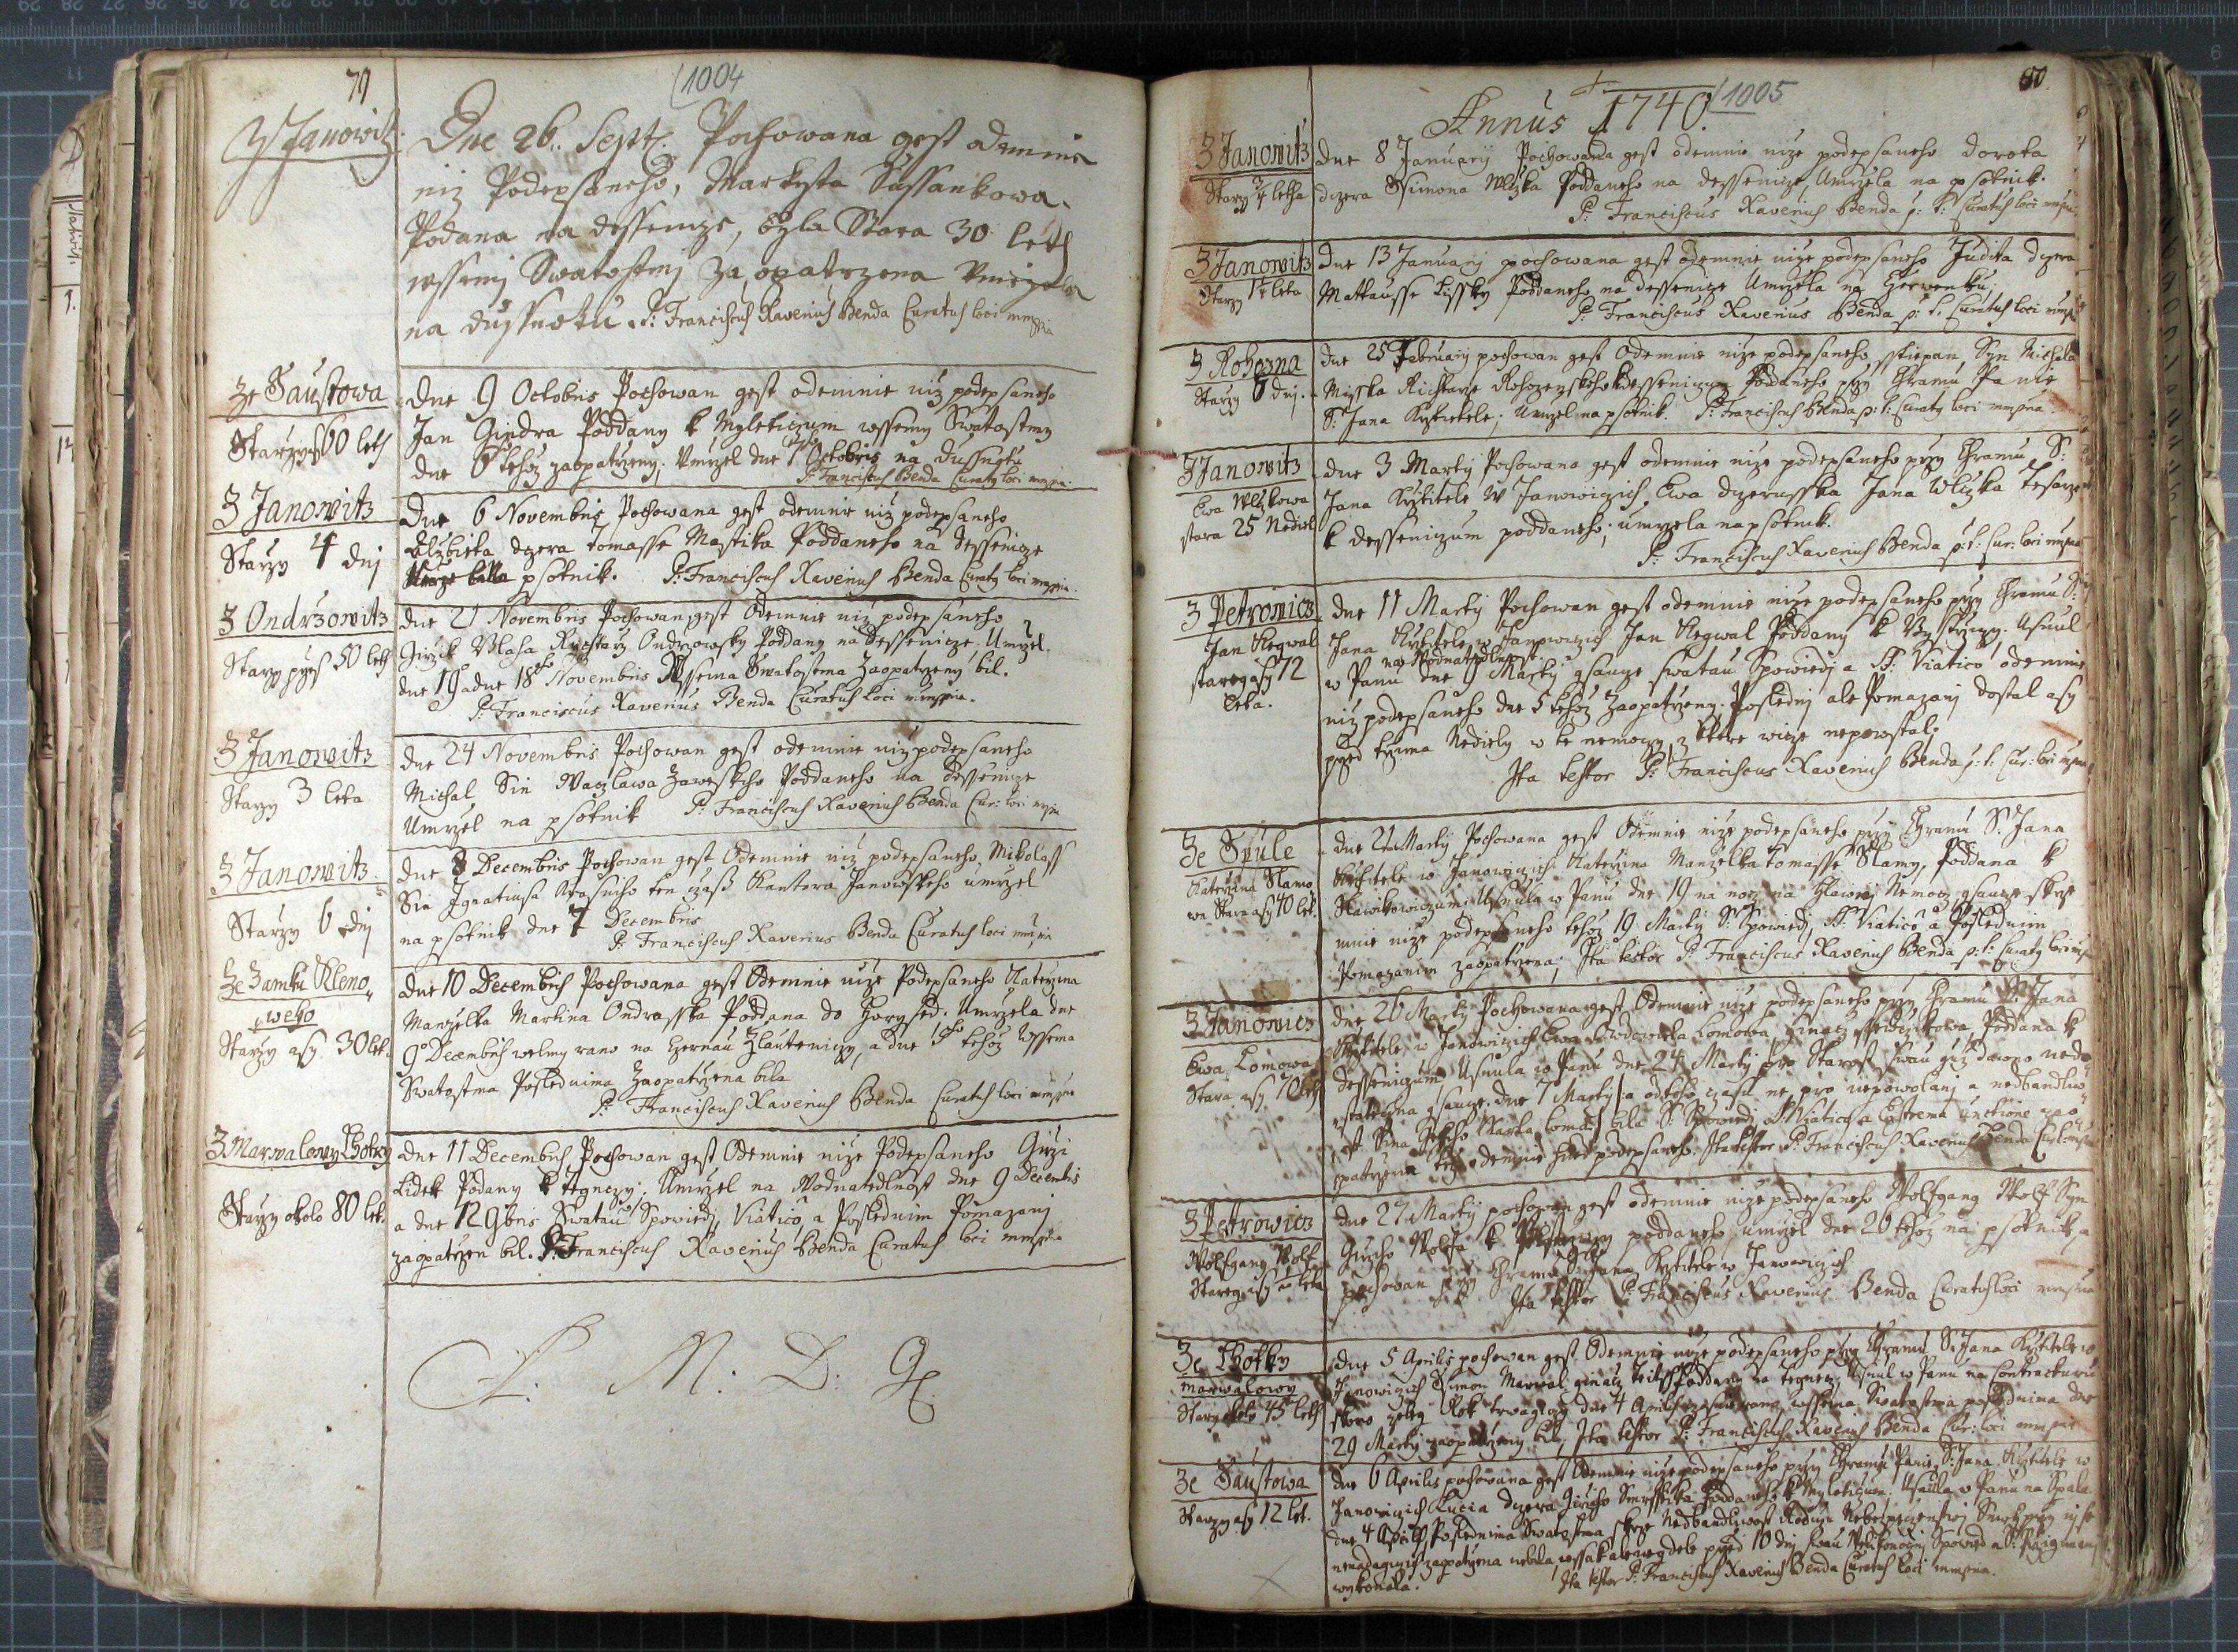 79
(1004
Z Janowitz.
Dne 26. Sept. Pochowana gest odemnie
niz Podepsaneho, Markyta Sussankowa
Podana na dessenize, byla Stara 30 leth
wssemj Swatostmj za opatrzena Umrzela
na dussnotu. P: Franciscus Xaverius Benda Curatus loci mmpria
Ze Saustowa
Starzy 60 leth
Dne 9 Octobris Pochowan gest odemnie niz podepsaneho
Jan Gindra Poddany k Mgleticzum wssemy Swatostmy
dne 6 tehoz zaopatrzeny. Umrzel dne 7 Octobris na Dussnotu
P: Franciscus Benda Curaty loci mmpria.
Z Janowitz
Starzy 4 dnj
Dne 6 Novembris Pochowana gest odemnie niz podepsaneho
Alzbieta dcera Tomasse Mastika Poddaneho na dessenicze
psotnik. P: Franciscus Xaverius Benda Curaty loci mmpria.
Z Ondrzowitz
Starzy pres 50 leth
dne 21 Novembris Pochowan gest Odemnie niz podepsaneho
Girzik Blaha Rychtarz Ondrzowsky Poddany na Dessenicze. Umrzel
dne 19 a dne 18 Novembris Wssema Swatostma Zaopatrzeny bil.
P: Franciscus Xaverius Benda Curatus Loci mmpria.
Z Janowitz
Starzy 3 leta
dne 24 Novembris Pochowan gest odemnie niz podepsaneho
Michal Sin Waczlawa Zaweskeho Poddaneho na dessenicze
Umrzel na psotnik P: Franciscus Xaverius Benda Cur: loci mpria
Z Janowitz.
Starzy 6 dnj
dne 8 Decembris Pochowan gest Odemnie niz podepsaneho, Mikolass
Sin Ignatiusa ten czass Kantora Janowskeho umrzel
na psotnik dne 7 Decembris
P: Franciscus Xaverius Benda Curatus loci mmpria
Ze Zamku Kleno,,
weho
Starzy asy 30 let.
dne 10 Decembris Pochowana gest Odemnie nize Podepsaneho Katerzina
Manzelka Martina Ondrasska Poddana do Hory sed. Umrzela dne
9 Decembris welmy rano na Czernau Zlautenicy, a dne tehoz Wssema
Swatostma Poslednima Zaopatrzena bila
P: Franciscus Xaverius Benda Curatus loci mmpria
Z Marwalowy Lhotky
Starzy okolo 80 let.
dne 11 Decembris Pochowan gest Odemnie nize Podepsaneho Girzi
Lidek Podany k Tegnczy. Umrzel na Wodnatedlnost dne 9 Decembris
a dne 12 9bris Swatau Spowiedj, Viatico a Poslednim Pomazanj
zaopatrzen bil. P: Franciscus Xaverius Benda Curatus loci mmpria
A. M. D. G.
80.
Annus 1740.
(1005
Z Janowitz
Starzy 3/4 letha
dne 8 Januarij Pochowana gest odemnie nize podepsaneho Dorota
dczera Ssimona Wlzka Poddaneho na dessenize, Umrzela na psotnik.
P: Franciscus Xaverius Benda p: t: Curatus loci mmpria
Z Janowitz
Starzy leta
dne 13 Januarij pochowana gest odemnie nize podepsaneho Judita dczera
Mattausse Lissky Poddaneho na dessenize Umrzela na Czerwenku.
P: Franciscus Xaverius Benda p: t: Curatus loci mmpria
Z Rohozna
Starzy 6 dnj.
dne 25 Februarij pochowan gest Odemnie nize podepsaneho Sstiepan, Syn Michala
Misska Richtarze Rohozenskeho dessenicum Poddaneho przy Chramu Panie
S. Jana Krztitele; Umrzel na psotnik. P: Franciscus Benda p: t: Curaty loci mmpria.
Z Janowitz
Ewa Wlzkowa
stara 25 Nediel
dne 3 Martij Pochowana gest odemnie nize podepsaneho przy Chramu S:
Jana Krztitele W Janowiczich, Ewa dczerusska Jana Wlizka Tesarze
k dessenicum poddaneho; umrzela na psotnik.
P: Franciscus Xaverius Benda p: t: Cur: loci mmpria
Z Petrowicz
Jan Regwal
stareg asy 72
leta.
dne 11 Martij Pochowan gest odemnie nize podepsaneho przy Chramu S:
Jana Krztitele w Janowiczich Jan Regwal Poddany k Bystrzicy. Usnul
na Wodnatedlnost
w Panu dne 9 Martij gsauce swatau Spowiedj a SS: Viatico odemnie
niz podepsaneho dne 5 tehoz Zaopatrzeny. Poslednj ale Pomazanj dostal asy
przed trzema Nedielj w te nemocy, z ktere wicze nepowstal.
Ita testor P: Franciscus Xaverius Benda p: t: Cur: loci mmpria
Ze Spule
Katerzina Slamo
wa Stara asy 40 let.
dne 21 Martij Pochowana gest Odemnie nize podepsaneho przy Chramu S: Jana
Krztitele w Janowiczich Katerzina Manzelka Tomasse Slamy, Poddana k
Slawikowiczum. Usnula w Panu dne 19 na nocz na Hlawnj Nemocz gsauce skrze
mnie nize podepsaneho tehoz 19 Martij S: Spowiedj, SS: Viatico a Poslednim
Pomazanim zaopatrzena; Ita testor P: Franciscus Xaverius Benda p: t: Curaty loci mpria
Z Janowicz
Ewa Lomowa
Stara asy 70 leth
dne 26 Martij Pochowana gest Odemnie nize podepsaneho przy Chramu S: Jana
Krztitele w Janowiczich Ewa Lomowa, Poddana k
dessenicum, Usnula w Panu dne 24 Martij pro Starost swau giz dawno nedo
statecna gsauce. dne 7 Martij a od toho czasu ne pro nepowolanj a nedbanliw
ost Sina geho bila S: Spowiedj, SS Viatico a Extrema Unctione zao
patrzena tez odemnie hned podepsaneho. Ita testor P: Franciscus Xaverius Benda
Z Petrowicz
Wolfgang Wolf
Stareg asy leta
dne 27 Martij pochowan gest odemnie nize podepsaneho Wolfgang Wolf Syn
Girzeho Wolfa k Bistrzicy poddaneho umrzel dne 26 tehoz na psotnik, a
pochowan przy Chramu S: Jana Krztitele w Janowiczich.
Ita testor P: Franciscus Xaverius Benda Curatus loci mmpria
Ze Lhotky
Marwalowy
Starzy okolo 45 leth
dne 5 Aprilis pochowan gest Odemnie nize podepsaneho przy Chramu S. Jana Krztitele w
Janowiczich Ssimon Marwal ginacz Poddany na Tegnecz Usnul w Panu na Contracturu
skoro zeleg Rok trwagiczy dne 4 Aprilis wssema Swatostma poslednima dne
29 Martij zaopatrzeny bil, Ita testor P: Franciscus Xaverius Benda Cur: loci mmpria
Ze Saustowa
Starzy asy 12 let.
dne 6 Aprilis pochowana gest Odemnie nize podepsaneho przy Chramu Panie S: Jana Krztitele w
Janowiczich Lucia dczera Girziho Poddaneho k Mgleticzum. Usnula w Panu na Spala
dne 4 Aprilis Poslednima Swatostma skrze Nedbanliwost Rodiczu
zaopatrzena nebila, wssak ale przed 10 dnj swau Welikonocznj Spowied
wykonala. Ita testor P: Franciscus Xaverius Benda Curatus loci mmpria.